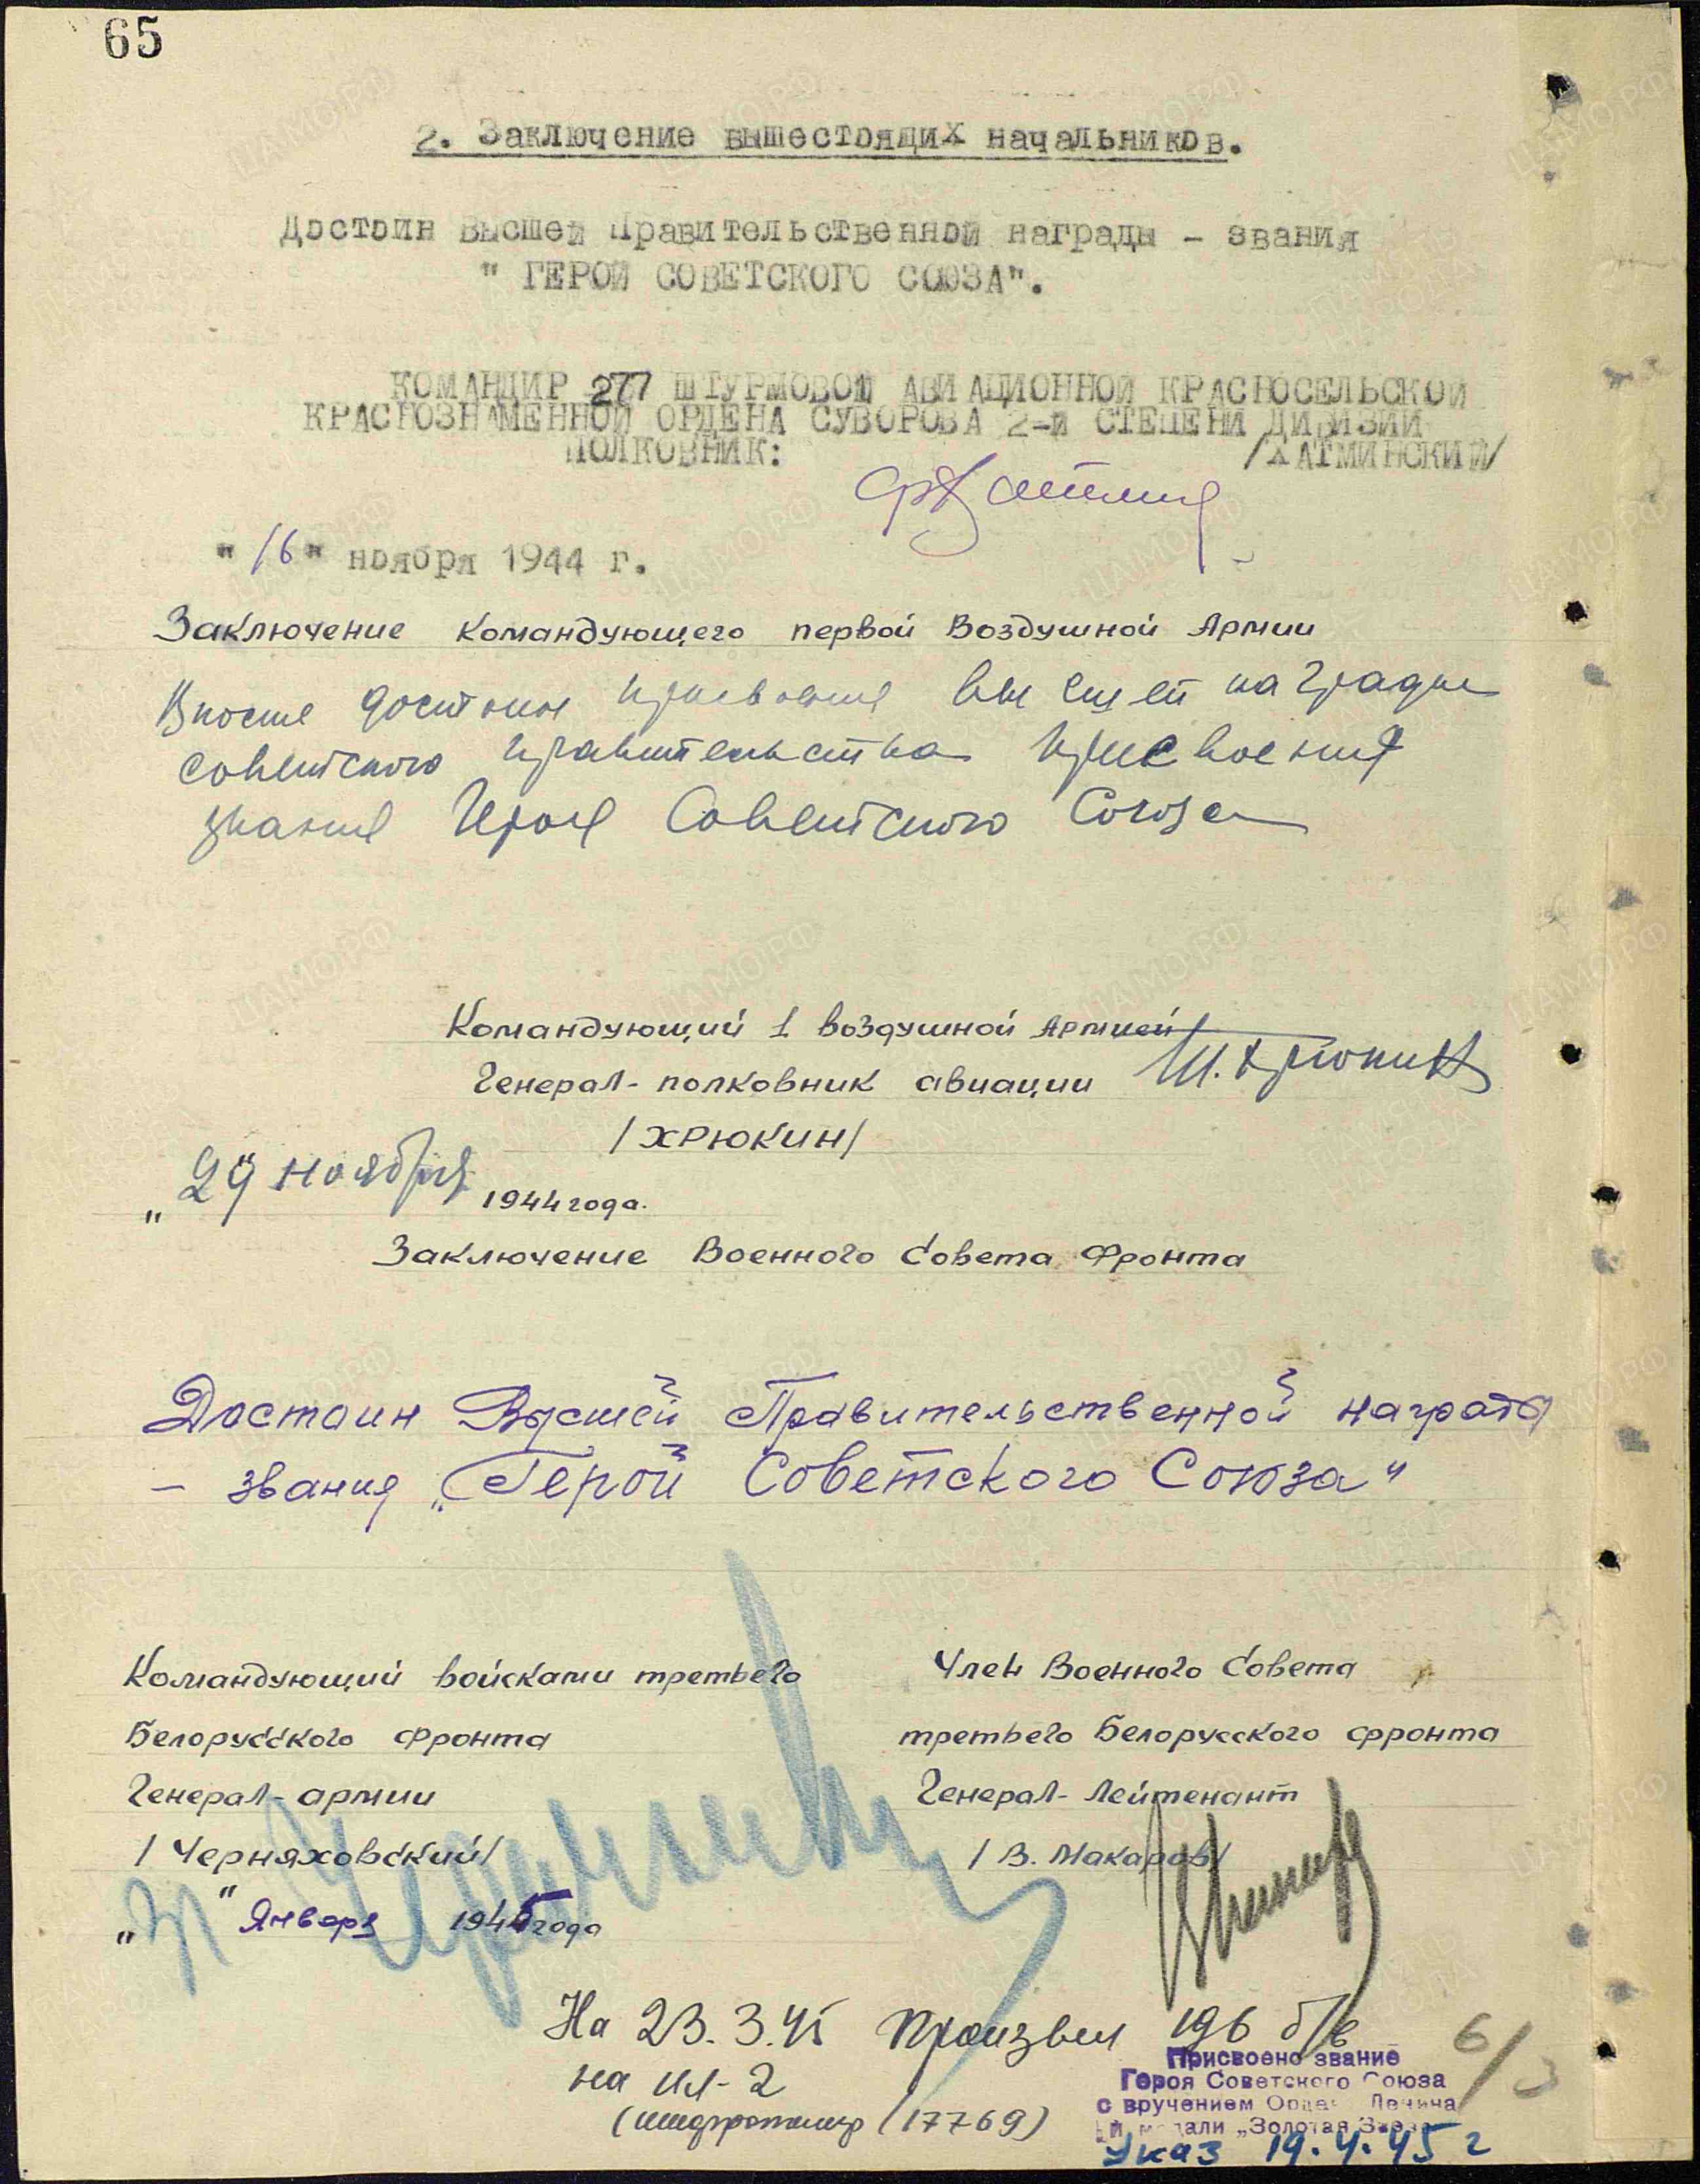 65
2. Заключение вышестоящих начальников.
Достоин Высшей Правительственной награды - звания
" ГЕРОЙ СОВЕТСКОГО СОЮЗА".
КОМАНДИР 277 ШТУРМОВОЙ АВИАЦИОННОЙ КРАСНОСЕЛЬСКОЙ
КРАСНОЗНАМЕННОЙ ОРДЕНА СУВОРОВА 2-й СТЕПЕНИ ДИВИЗИИ
ПОЛКОВНИК: /ХАТМИНСКИЙ/
"16" ноября 1944 г.
Заключение Командующего первой Воздушной Армии
Вполне достоин присвоения высшей награды
советского правительства присвоения
звания Героя Советского Союза
Командующий 1 воздушной Армией
Генерал-полковник авиации Т. Хрюкин
/ХРЮКИН/
„29" ноября 1944 года.
Заключение Военного Совета Фронта
Достоин Высшей Правительственной награды
- звания „Герой Советского Союза"
Командующий войсками третьего
Белорусского Фронта
Генерал-армии
/Черняховский/
" Января 1945 года
Член Военного Совета
третьего Белорусского фронта
Генерал-Лейтенант
/В. Макаров/
На 23.3.45 произвел 196 б/в
на Ил-2
(17769)
Присвоено звание
Героя Советского Союза
с вручением Ордена Ленина
и медали „Золотая Звезда"
Указ 19.4.45 г
6/3